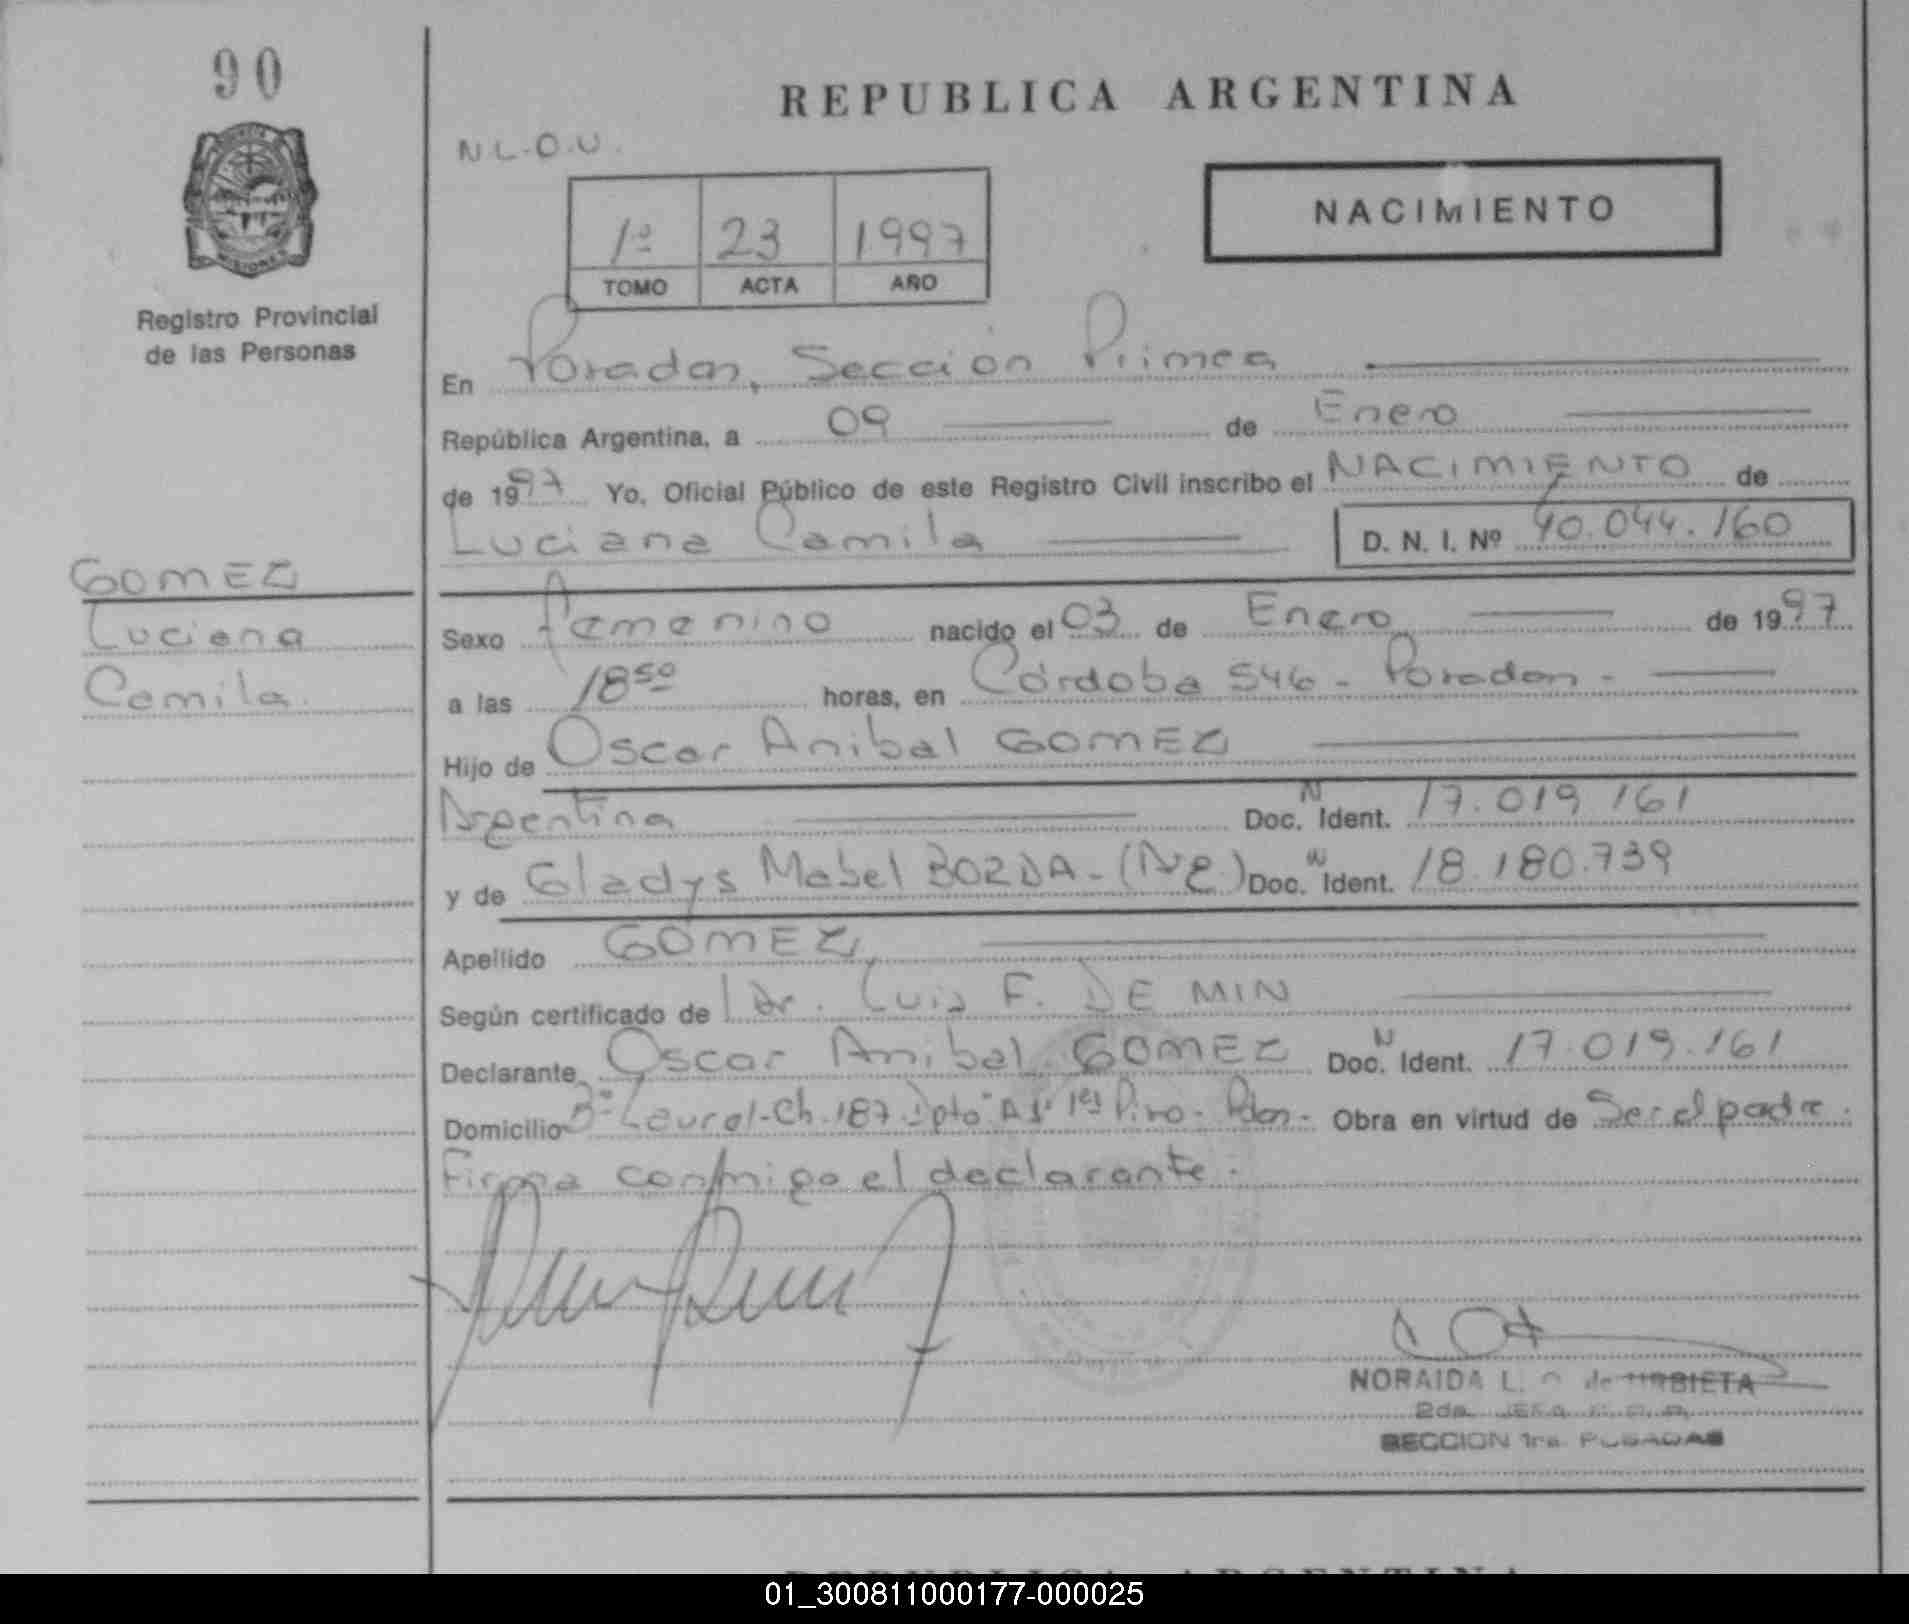 90
REPUBLICA ARGENTINA
N.L.O.U.
NACIMIENTO
1º 23 1997
TOMO ACTA AÑO
MISIONES
Registro Provincial
de las Personas
En Posadas, Sección Primea
República Argentina, a 09 de Enero
de 1997 Yo, Oficial Público de este Registro Civil inscribo el NACIMIENTO de
Luciana Camila D. N. I. Nº 40.044.160
GOMEZ
Luciana
Camila.
Sexo femenino nacido el 03 de Enero de 1997
a las 18⁵⁰ horas, en Córdoba 546 - Posadas -
Hijo de Oscar Anibal GOMEZ
Argentina Doc. N Ident. 17.019.161
y de Gladys Mabel BORDA - Doc. N Ident. 18.180.739
Apellido GOMEZ
Según certificado de Dr. Luis F. DE MIN
Declarante Oscar Anibal GOMEZ Doc. N Ident. 17.019.161
Domicilio Bº Laurel - Ch. 187 - Dpto "A" 1er Piso - Pdas - Obra en virtud de Ser el padre.
Firma conmigo el declarante.
NORAIDA L. O. de URBIETA
2da. JEFA
SECCION 1ra. POSADAS
REPUBLICA ARGENTINA
01_300811000177-000025